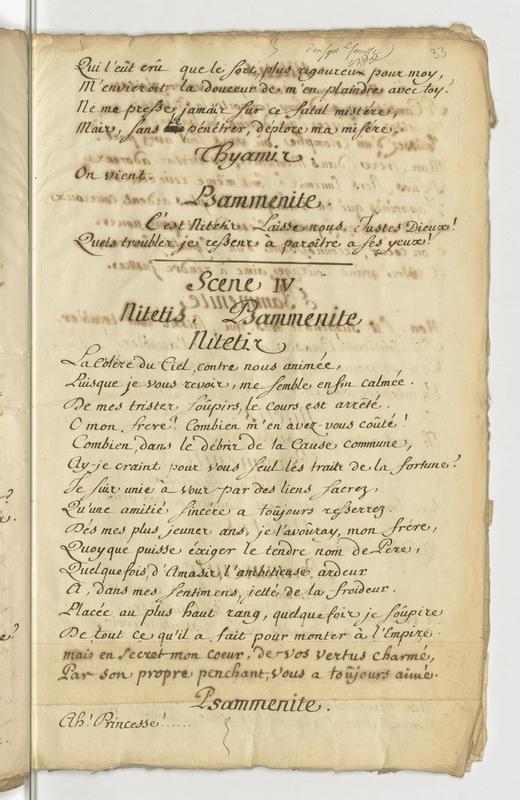 33
Qui l'eût crû que le sort, plus rigoureux pour moy,
M'envieroit la douceur de m'en plaindre avec toy?
Ne me presse jamais sur ce fatal mistére,
Mais, sans le pénétrer, déplore ma misére.
Thyamis
On vient.
Psammenite.
C'est Nitetis. Laisse nous. Justes Dieux!
Quels troubles je ressens à paroître à ses yeux!
Scene IV.
Nitetis. Psammenite.
Nitetis
La Colére du Ciel, contre nous animée,
Puisque je vous revois, me semble enfin calmée.
De mes tristes soûpirs, le cours est arrêté.
O mon frere! Combien m'en avez-vous coûté!
Combien, dans le débris de la Cause commune,
Ay-je craint pour vous seul les traits de la fortune?
Je suis unie à vous par des liens sacrez,
Qu'une amitié sincére a toûjours resserrez.
Dés mes plus jeunes ans, je l'avoüray, mon frére,
Quoyque puisse éxiger le tendre nom de Pére,
Quelquefois, d'Amasis, l'ambitieuse ardeur
A, dans mes sentimens, jetté de la froideur.
Placée au plus haut rang, quelquefois je soûpire
De tout ce qu'il a fait pour monter à l'Empire.
mais en Secret mon coeur, de vos vertus charmé,
Par son propre penchant, vous a toûjours aimé.
Psammenite.
Ah! Princesse!.....